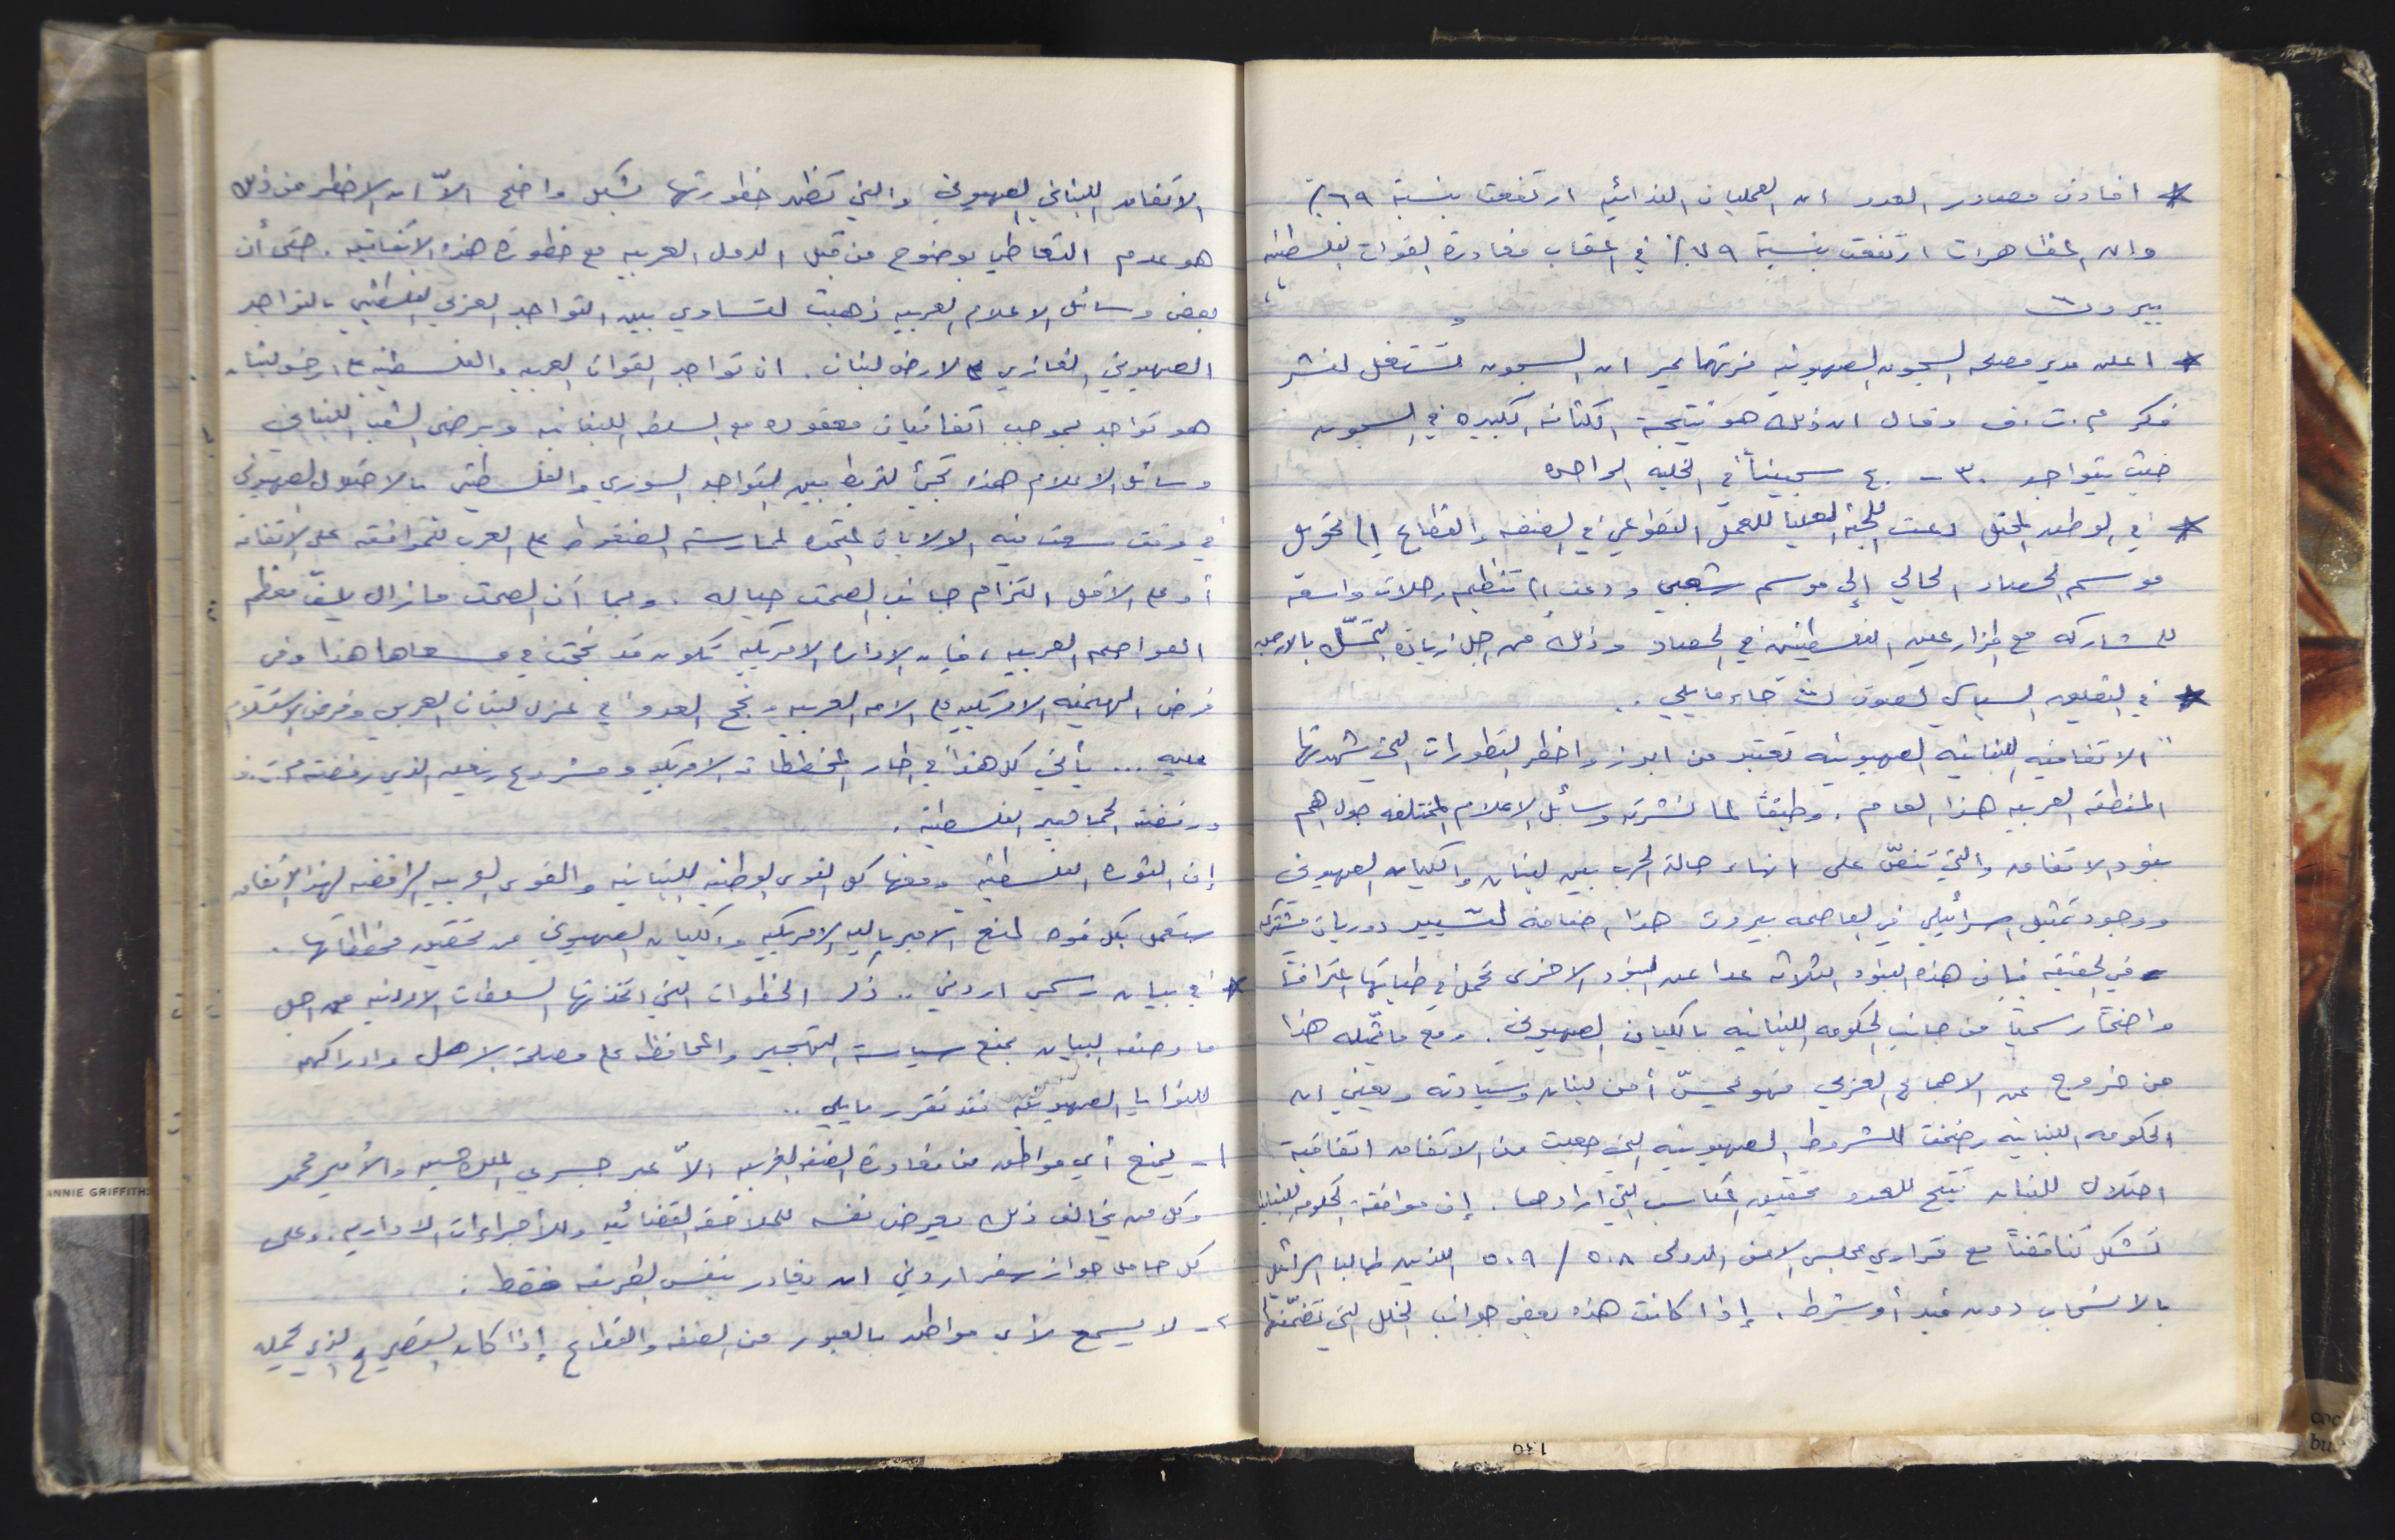 * افادت مصادر العدو ان العمليات الفدائيه ارتفعت بنسبة ٦٩٪
وان المظاهرات ارتفعت بنسبة ٧٩٪ في اعقاب مغادرة القوات الفلسطينيه
بيروت
* اعلن مدير مصلحه السجون الصهيونيه ان السجون تستغل لنشر
فكر م.ت.ف وقال ان ذلك هو نتيجة الكثافه الكبيره في السجون
حيث يتواجد ٣٠ - ٤٠ سجيناً في الخليه الواحده
* في الوطن المحتل دعت اللجنه العليا للعمل التطوعي في الضفه والقطاع إلى تحويل
موسم الحصاد الحالي إلى موسم شعبي ودعت إلى تنظيم رحلات واسعه
للمشاركه مع المزارعين الفلسطينين في الحصاد وذلك من اجل زيادة التمسّك بالارض
* في التعليق السياسي لصوت جاء ما يلي ..
" الاتفاقيه اللبنانيه الصهيونيه تعتبر من ابرز واخطر التطورات التي شهدتها
المنطقه العربيه هذا العام . وطبقاً لما نشرته وسائل الاعلام المختلفه حول اهم
بنود الاتفاق والتي تنصّ على انهاء حالة الحرب بين لبنان والكيان الصهيوني
ووجود تمثيل اسرائيلي في العاصمه بيروت هذا اضافه لتسيير دوريات مشتركه
وفي الحقيقه فإن هذه البنود الثلاثه عدا عن البنود الاخرى تحمل في طياتها اعترافاً
واضحاً رسمياً من جانب الحكومه اللبنانيه بالكيان الصهيوني . ومع ما تمثّله هذا
من خروج عن الاجماع العربي فهو يمسّ أمن لبنان وسيادته ويعني ان
الحكومه اللبنانيه رضخت للشروط الصهيونيه التي جعلت من الاتفاق اتفاقية
احتلال للبنان تتيح للعدو تحقيق المكاسب التي ارادها . إن موافقة الحكومه اللبنانيه
تشكل تناقضاً مع قراري مجلس الامن الدولي ٥٠٨ / ٥٠٩ اللذين طالبا اسرائيل
بالانسحاب دون قيد أو شرط . إذا كانت هذه بعض جوانب الخلل التي تضمّنها
الاتفاق اللبناني الصهيوني والتي تظهر خطورتها بشكل واضح الاّ ان الاخطر من ذلك
هو عدم التعاطي بوضوح من قبل الدول العربيه مع خطورة هذه الاتفاقيه . حتى أن
بعض وسائل الاعلام العربيه ذهبت لتساوي بين التواجد العربي الفلسطيني بالتواجد
الصهيوني الغازي لارض لبنان . ان تواجد القوات العربيه والفلسطينيه على ارض لبنان
هو تواجد بموجب اتفاقيات معقوده مع السلطه اللبنانيه وبرضى الشعب اللبناني
وسائل الاعلام هذه تجيئ لتربط بين التواجد السوري والفلسطيني بالاحتلال الصهيوني
في وقت سعت فيه الولايات المتحده لممارسة الضغوط على العرب للموافقه على الاتفاق
أو على الاقل التزام جانب الصمت حياله . وبما أن الصمت ما زال يلفّ معظم
العواصم العربيه ، فإن الاداره الامريكيه تكون قد نجحت في مسعاها هذا وفي
فرض الهيمنه الامريكيه على الامه العربيه ونجح العدو في عزل لبنان العربي وفرض الاستسلام
عليه ... يأتي كل هذا في اطار المخططات الامريكيه ومشروع ريغان الذي رفضته م.ت.ف
ورفضته الجماهير الفلسطينيه .
إن الثوره الفلسطينيه ومعها كل القوى الوطنيه اللبنانيه والقوى العربيه الرافضه لهذا الاتفاق
ستعمل بكل قوه لمنع الامبرياليه الامريكيه والكيان الصهيوني من تحقيق مخططاتها .
* في بيان رسمي اردني .. ذكر الخطوات التي اتخذتها السلطات الاردنيه من اجل
ما وصفه البيان بمنع سياسة التهجير والمحافظه على مصلحة الاهل وادراكهم
للنوايا الصهيونيه فقد تقرر ما يلي ..
١ - يمنع أي مواطن من مغادرة الضفه الغربيه الاّ عبر جسري الملك حسين والأمير محمد
وكل من يخالف ذلك يعرض نفسه للملاحقه القضائيه وللأجراءات الاداريه . وعلى
كل حامل جواز سفر اردني ان يغادر بنفس الطريقه فقط .
٢ - لا يسمح لأي مواطن بالعبور من الضفه والقطاع إذا كان التصريح الذي يحمله
ANNIE GRIFFITHS
139